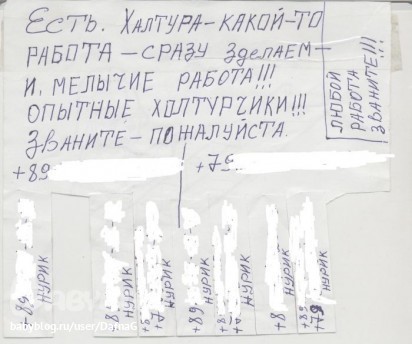 ЕСТЬ. ХАЛТУРА-КАКОЙ-ТО
РАБОТА-СРАЗУ ЗДЕЛАЕМ-
И, МЕЛЫЧИЕ РАБОТА!!!
ОПЫТНЫЕ ХОЛТУРЧИКИ!!!
ЗВАНИТЕ-ПОЖАЛУЙСТА.
+89
+79
ЛЮБОЙ
РАБОТА
ЗВАНИТЕ!!!
+89
НУРИК
+8
НУРИК
+7
НУРИК
+89
НУРИК
+7
НУРИК
+8
НУРИК
+89
+79
НУРИК
babyblog.ru/user/DajnaG